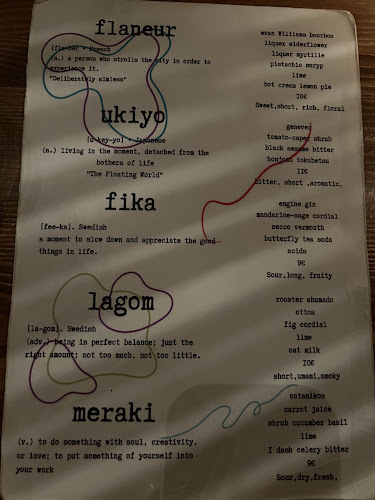 flaneur
[fla-ner • French
(n.) a person who strolls the city in order to
experience it.
"Deliberately aimless"
evan Williams bourbon
liquer elderflower
liquer myrtille
pistachio muryp
lime
hot cream lemon pie
10€
Sweet,short, rich, floral
ukiyo
[u-key-yo] • Japanese
(n.) living in the moment, detached from the
bothers of life
"The Floating World"
genever
tomato-caper shrub
black sesame bitter
honjozo tokubetsu
11€
bitter, short ,aromatic,
fika
[fee-ka]. Swedish
a moment to slow down and appreciate the good
things in life.
engine gin
mandarine-sage cordial
secco vermouth
butterfly tea soda
acids
9€
Sour,long, fruity
lagom
[la-gom]. Swedish
(adv.) being in perfect balance; just the
right amount; not too much, not too little.
rooster ahumado
ottos
fig cordial
lime
oat milk
10€
short,umami,smoky
meraki
(v.) to do something with soul, creativity,
or love; to put something of yourself into
your work
votanikon
carrot juice
shrub cucumber basil
lime
1 dash celery bitter
9€
Sour,dry,fresh,